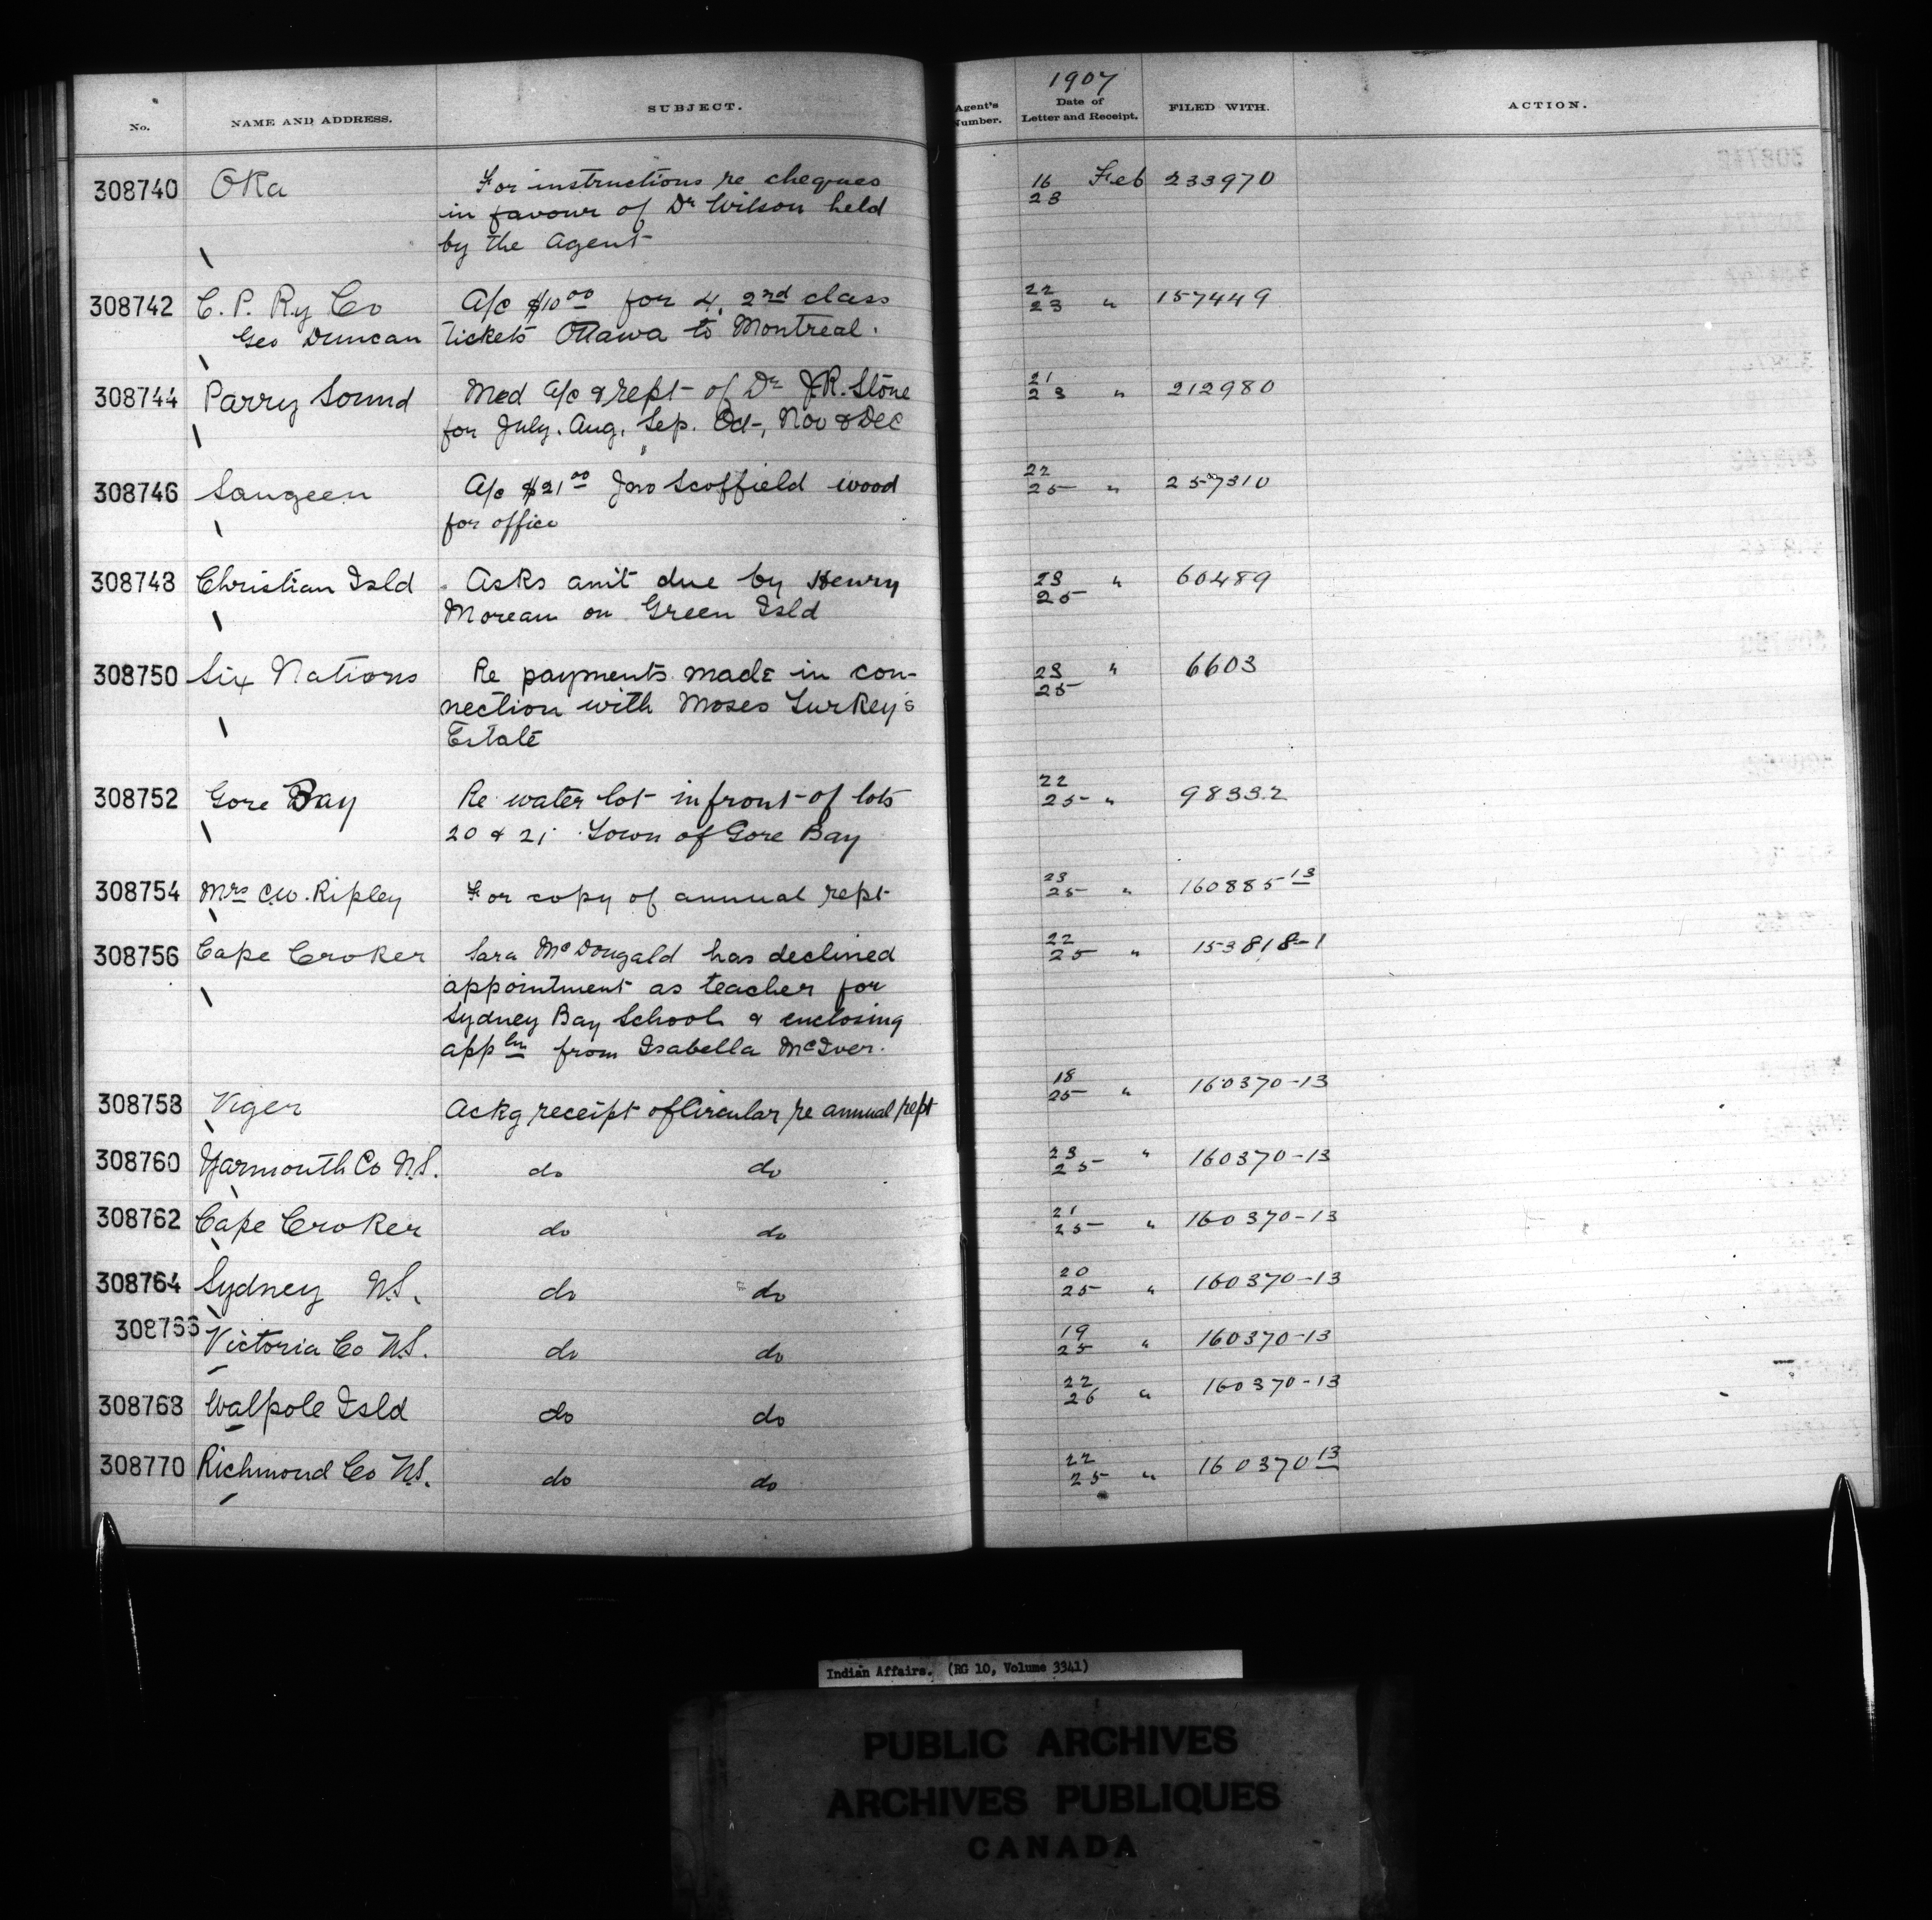 1907
No. NAME AND ADDRESS. SUBJECT. Agent's Number. Date of Letter and Receipt. FILED WITH. ACTION.
308740 Oka For instructions re cheques 16 Feb 233970
in favour of Dr Wilson held 23
by the Agent
308742 C. P. Ry Co A/c $10 00 for 4, 2nd class 22 157449
Geo Duncan tickets Ottawa to Montreal. 23 "
308744 Parry Sound Med A/c & rept of Dr J.R. Stone 21 212980
for July. Aug. Sep. Oct, Nov & Dec 23 "
308746 Saugeen A/c $21 00 Jno Scoffield wood 22 257310
for office 25 "
308748 Christian Isld Asks amt due by Henry 23 " 60489
Moreau on Green Isld 25
308750 Six Nations Re payments made in con- 23 " 6603
nection with Moses Turkey's 25
Estate
308752 Gore Bay Re water lot in front of lots 22 98332
20 & 21 Town of Gore Bay 25 "
308754 Mrs C.W. Ripley For copy of annual rept 23 160885 13
25 "
308756 Cape Croker Sara McDougald has declined 22 153818-1
appointment as teacher for 25 "
Sydney Bay School & enclosing
appln from Isabella McIver.
308758 Viger Ackg receipt of Circular re annual rept 18 160370-13
25 "
308760 Yarmouth Co N.S. do do 23 " 160370-13
25
308762 Cape Croker do do 21 160370-13
25 "
308764 Sydney N.S. do do 20 160370-13
25 "
308766 Victoria Co N.S. do do 19 160370-13
25 "
308768 Walpole Isld do do 22 160370-13
26 "
308770 Richmond Co N.S. do do 22 160370 13
25 "
Indian Affairs. (RG 10, Volume 3341)
PUBLIC ARCHIVES
ARCHIVES PUBLIQUES
CANADA